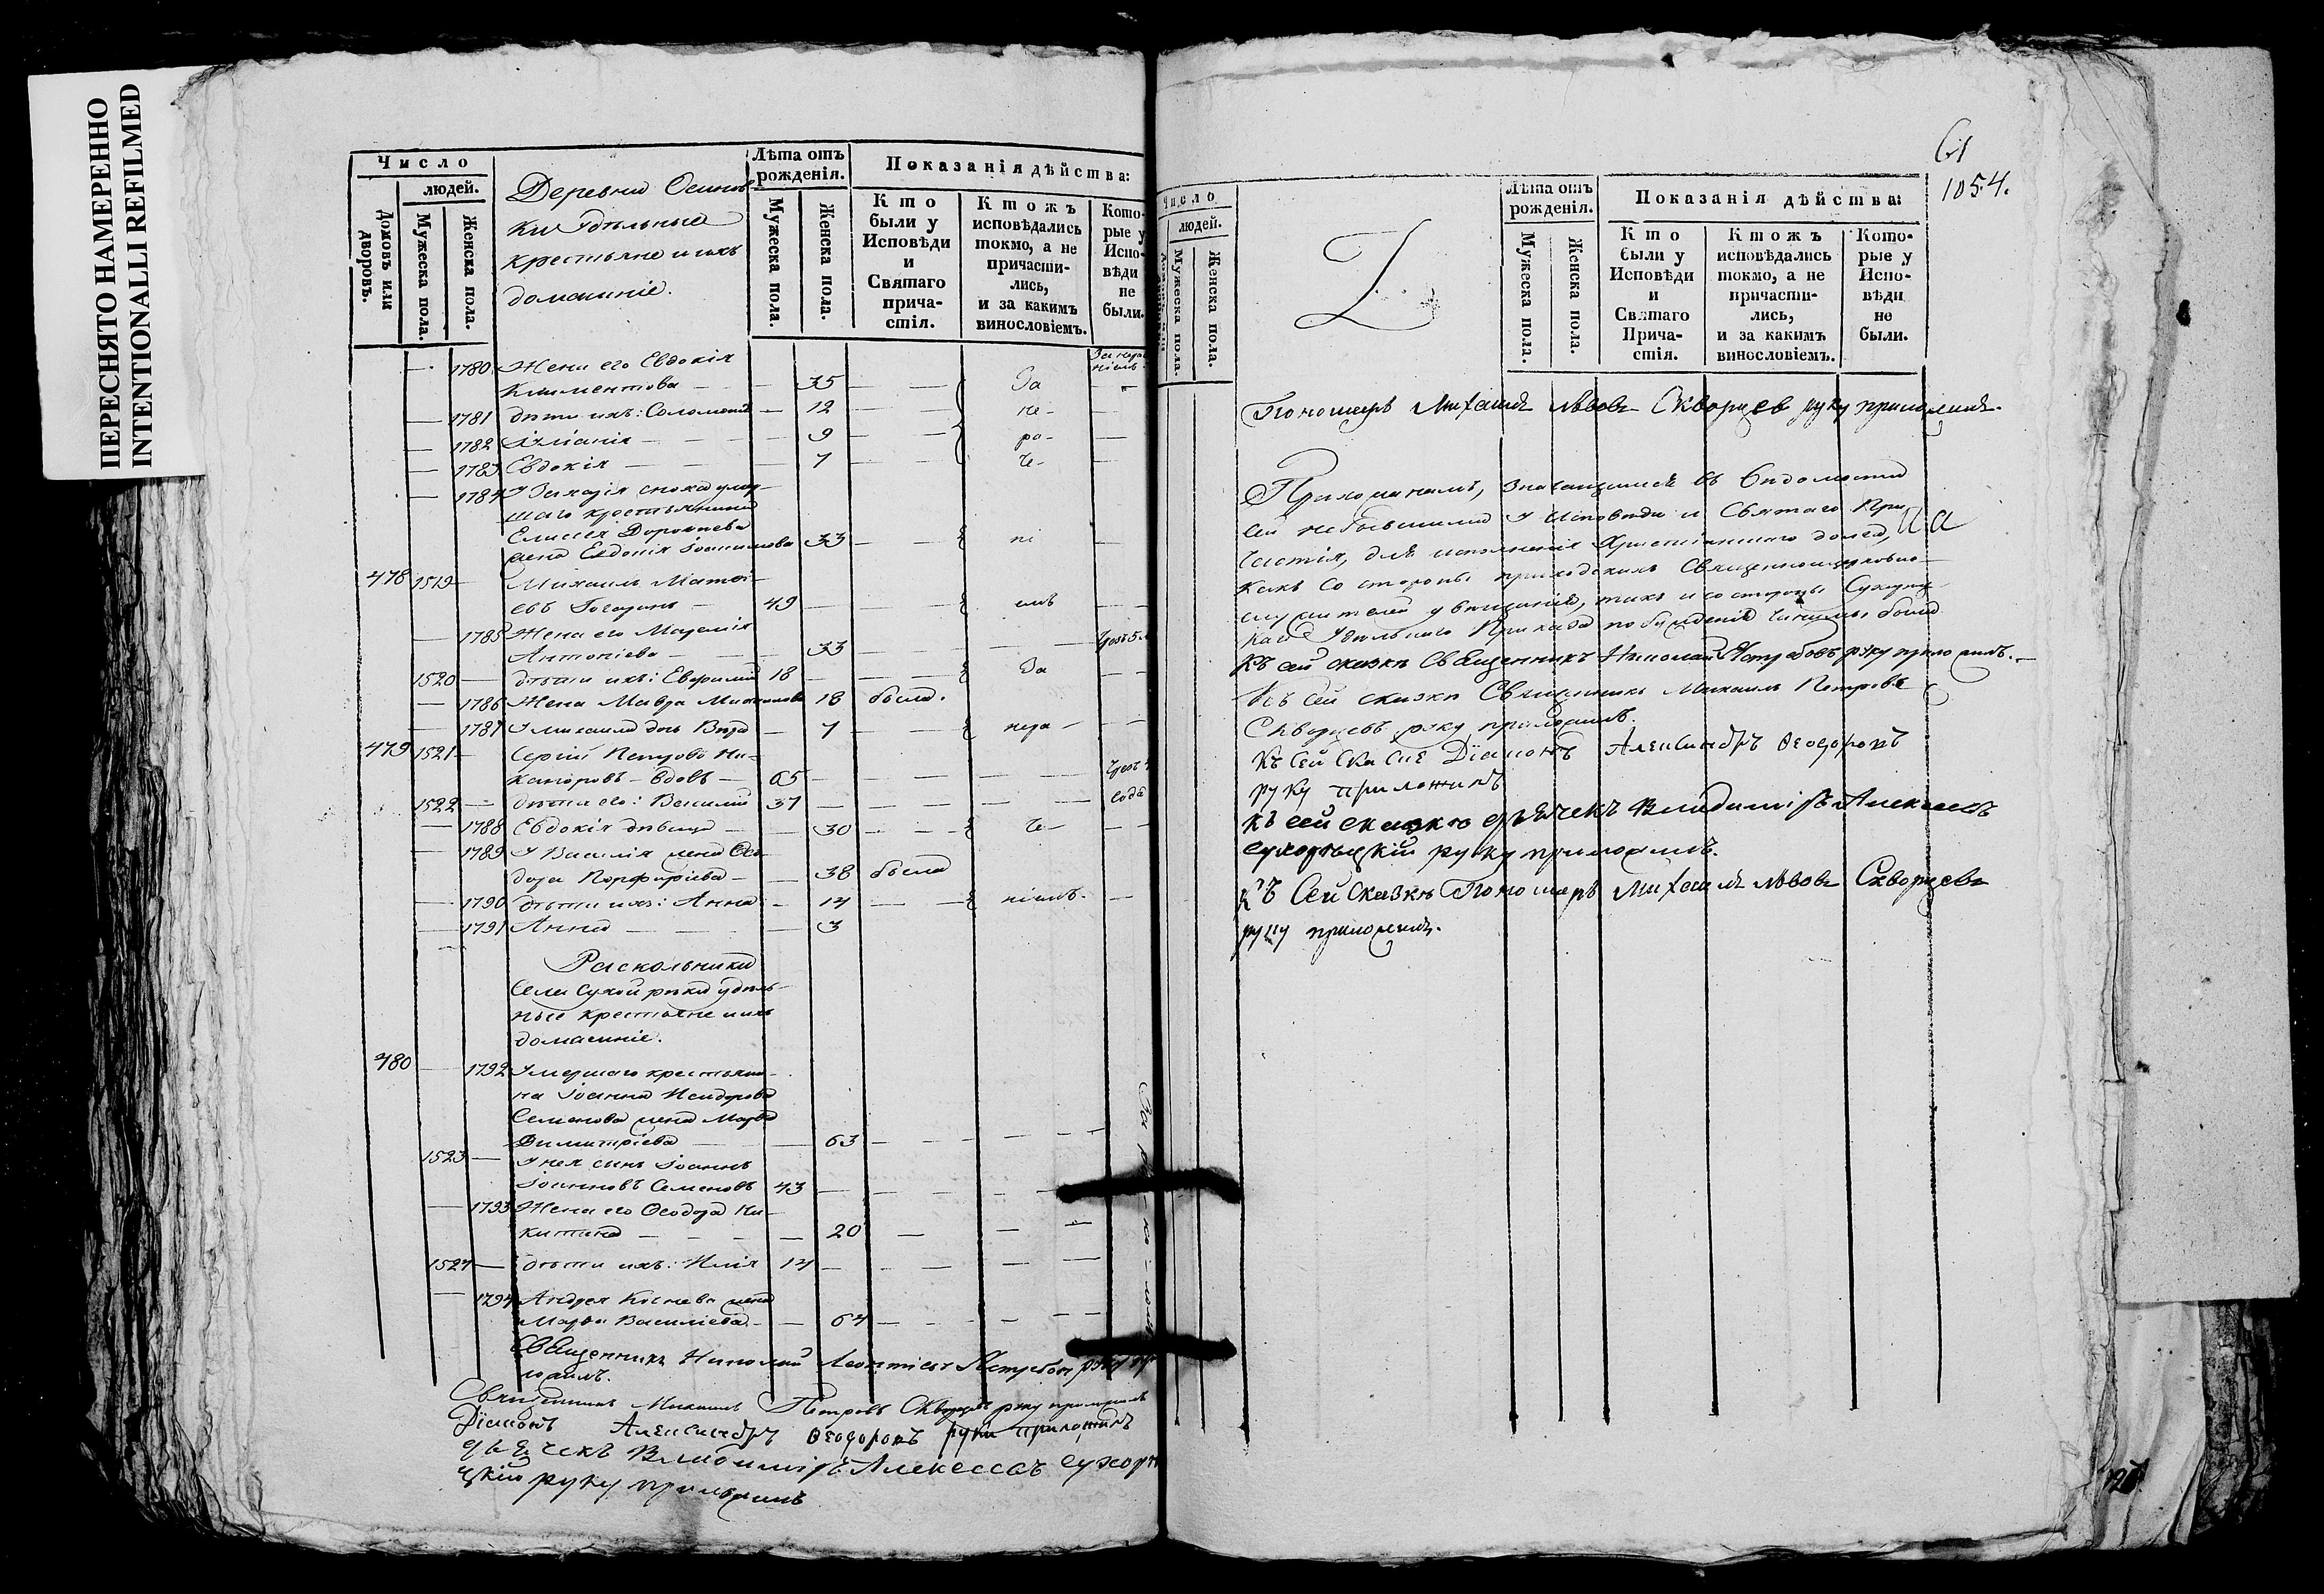 ПЕРЕСНЯТО НАМЕРЕННО
INTENTIONALLI REFILMED
Число
людей.
Домовъ или дворовъ.
Мужеска пола.
Женска пола.
Деревни Осинов-
ки Удѣльные
крестьяне и ихъ
домашніе.
Лѣта отъ рожденія.
Мужеска пола.
Женска пола.
Показанія дѣйства:
Кто были у Исповѣди и Святаго прича-стія.
Ктожъ исповѣдались токмо, а не причасти-лись, и за какимъ винословіемъ.
Кото-рые у Испо-вѣди не были.
1780 Жена его Евдокія
Климентова — — 35 — — За
1781 дѣти ихъ: Соломонія — 12 — — не-
1782 — 9 — — ра-
1783 Евдокія — 7 — — че-
1784 У Захарія сноха умер-
шаго крестьянина
Елисея Дороѳеева
жена Евдокія Іоаннова 33 — — ні
478 1519 — Михаилъ Матѳі-
евъ — 49 — — емъ
1785 Жена его
Антоніева — 33 — —
1520 — дѣти ихъ: Евѳимій 18 — — За
1786 Жена Мавра 18 была.
1787 У Михаила дочь Вѣра — 7 — — нера-
479 1521 — Сергій Петровъ Ни-
каноровъ — вдовъ — 65 — —
1522 — дѣти его: Василій 37 — — года
1788 Евдокія дѣвица — 30 — — че-
1789 У Василія жена Ѳео-
дора Порфирьева — 38 была
1790 дѣти ихъ: Анна — 14 — — ніемъ.
1791 Анна — — 3
Раскольники
Села Сухой рѣки удѣль-
ные крестьяне и ихъ
домашніе.
480 — 1792 Умершаго крестьяни-
на Іоанна Исидорова
Семенова жена Марѳа
Димитріева — 63 — —
1523 — У нея сынъ Іоаннъ
Іоанновъ Семеновъ 43 — —
1793 Жена его Ѳеодора Ни-
китина — — 20 — —
1524 — дѣти ихъ: Илія 14 — —
1794 Андрея жена
Марѳа Василіева — 64 — —
Священникъ Николай Леонтіевъ Ястребовъ руку при-
ложилъ.
Священникъ Михаилъ Петровъ Скворцовъ руку приложилъ
Діаконъ Александръ Ѳеодоровъ руку приложилъ
дьячекъ Владиміръ Алексеевъ Сухорѣ-
цкій руку приложилъ
61
1054.
Число
людей.
Мужеска пола.
Женска пола.
Лѣта отъ рожденія.
Мужеска пола.
Женска пола.
Показанія дѣйства:
Кто были у Исповѣди и Святаго Прича-стія.
Ктожъ исповѣдались токмо, а не причасти-лись, и за какимъ винословіемъ.
Кото-рые у Испо-вѣди не были.
Пономарь Михаилъ Львовъ Скворцев руку приложилъ.
Прихожанамъ, значащимся въ вѣдомости
сей небывшими у Исповѣди и Святаго При
частія, для исполненія Христіанскаго долга,
какъ со стороны приходскихъ священноцерковно-
служителей увѣщанія, такъ и со стороны Сухорѣц-
каго Удѣльнаго Приказа побужденія чинимы были
Къ сей сказкѣ Священникъ Николай Ястребовъ руку приложилъ.
Къ сей сказкѣ Священникъ Михаилъ Петровъ
Скворцовъ руку приложилъ.
Къ сей Діаконъ Александръ Ѳеодоровъ
руку приложилъ
къ сей сказкѣ дьячекъ Владиміръ Алексеевъ
Сухорѣцкій руку приложилъ.
къ Сей Сказкѣ Пономарь Михаилъ Львовъ Скворцевъ
руку приложилъ.